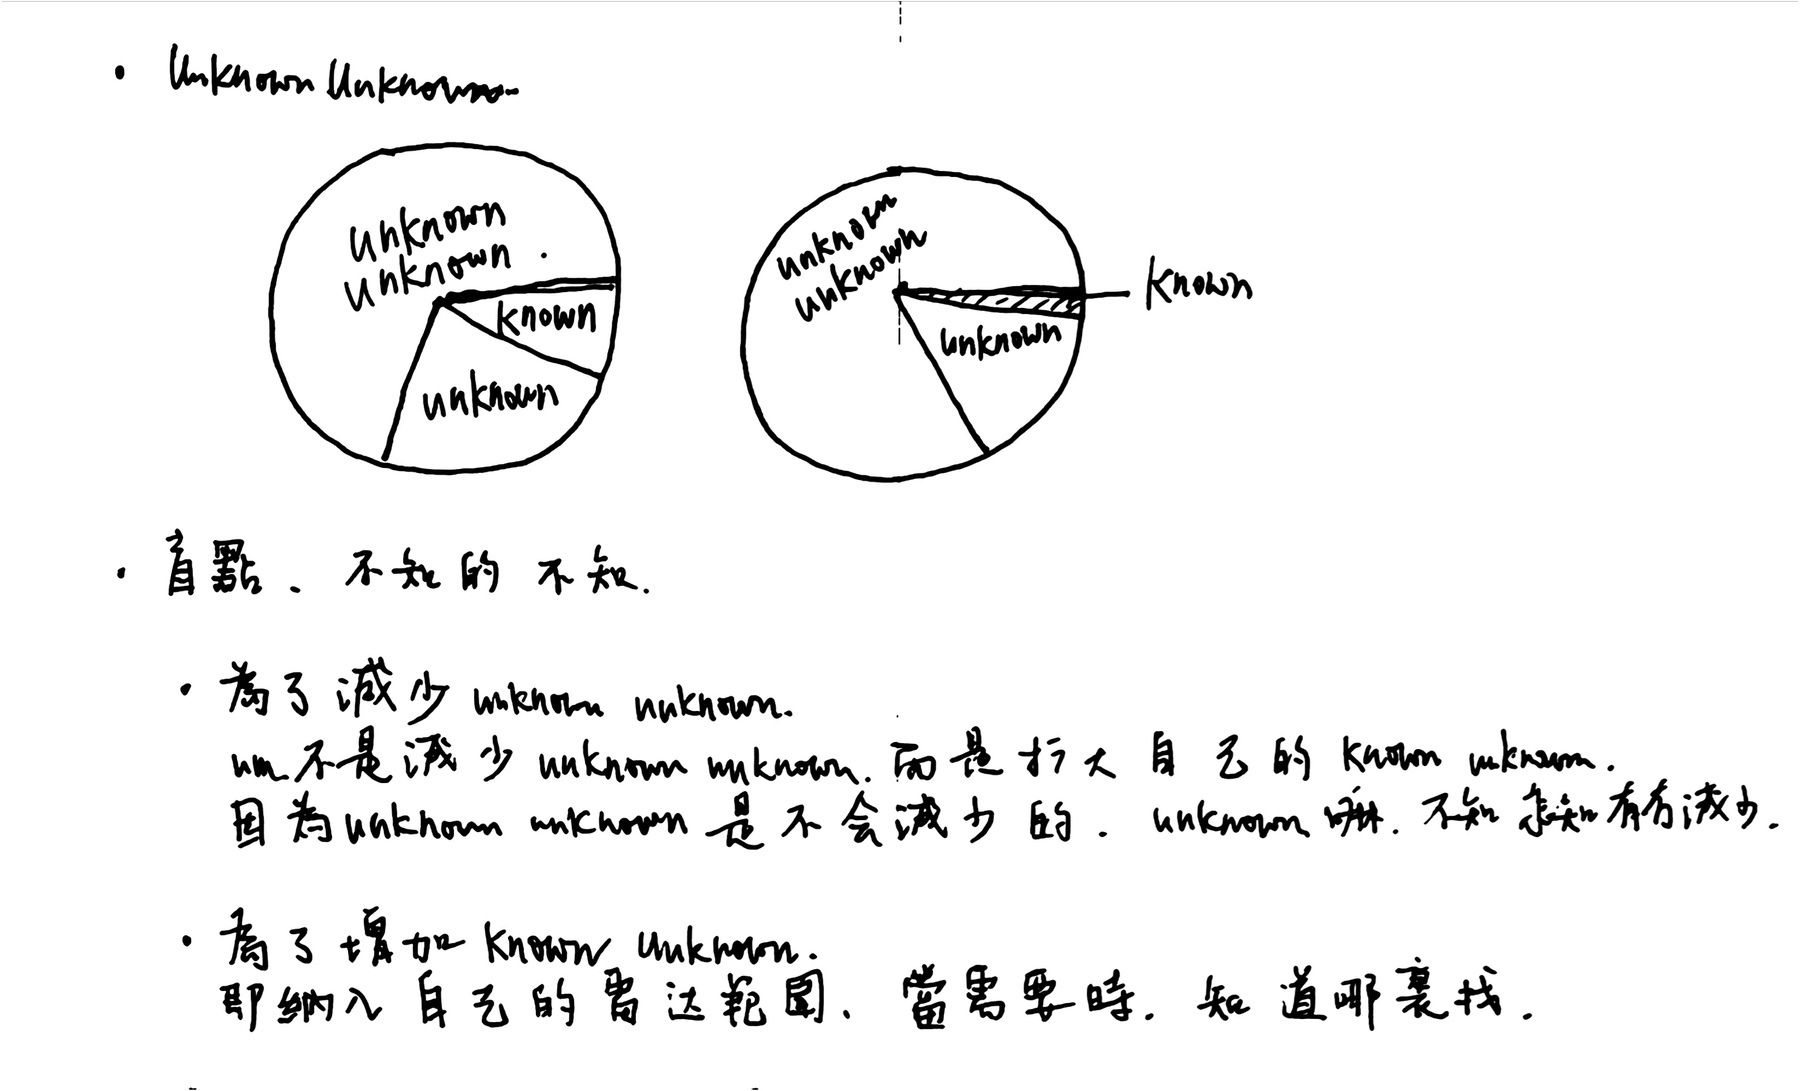 • Unknown Unknown
unknown
unknown
known
unknown
unknown
unknown
known
unknown
• 盲點、不知的不知.
• 為了減少 unknown unknown.
不是減少 unknown unknown. 而是扩大自己的 known unknown.
因為 unknown unknown 是不会減少的. unknown 嘛. 不知 怎知有有減少.
• 為了增加 known unknown.
即納入自己的雷达範圍、當需要時. 知道哪裏找.